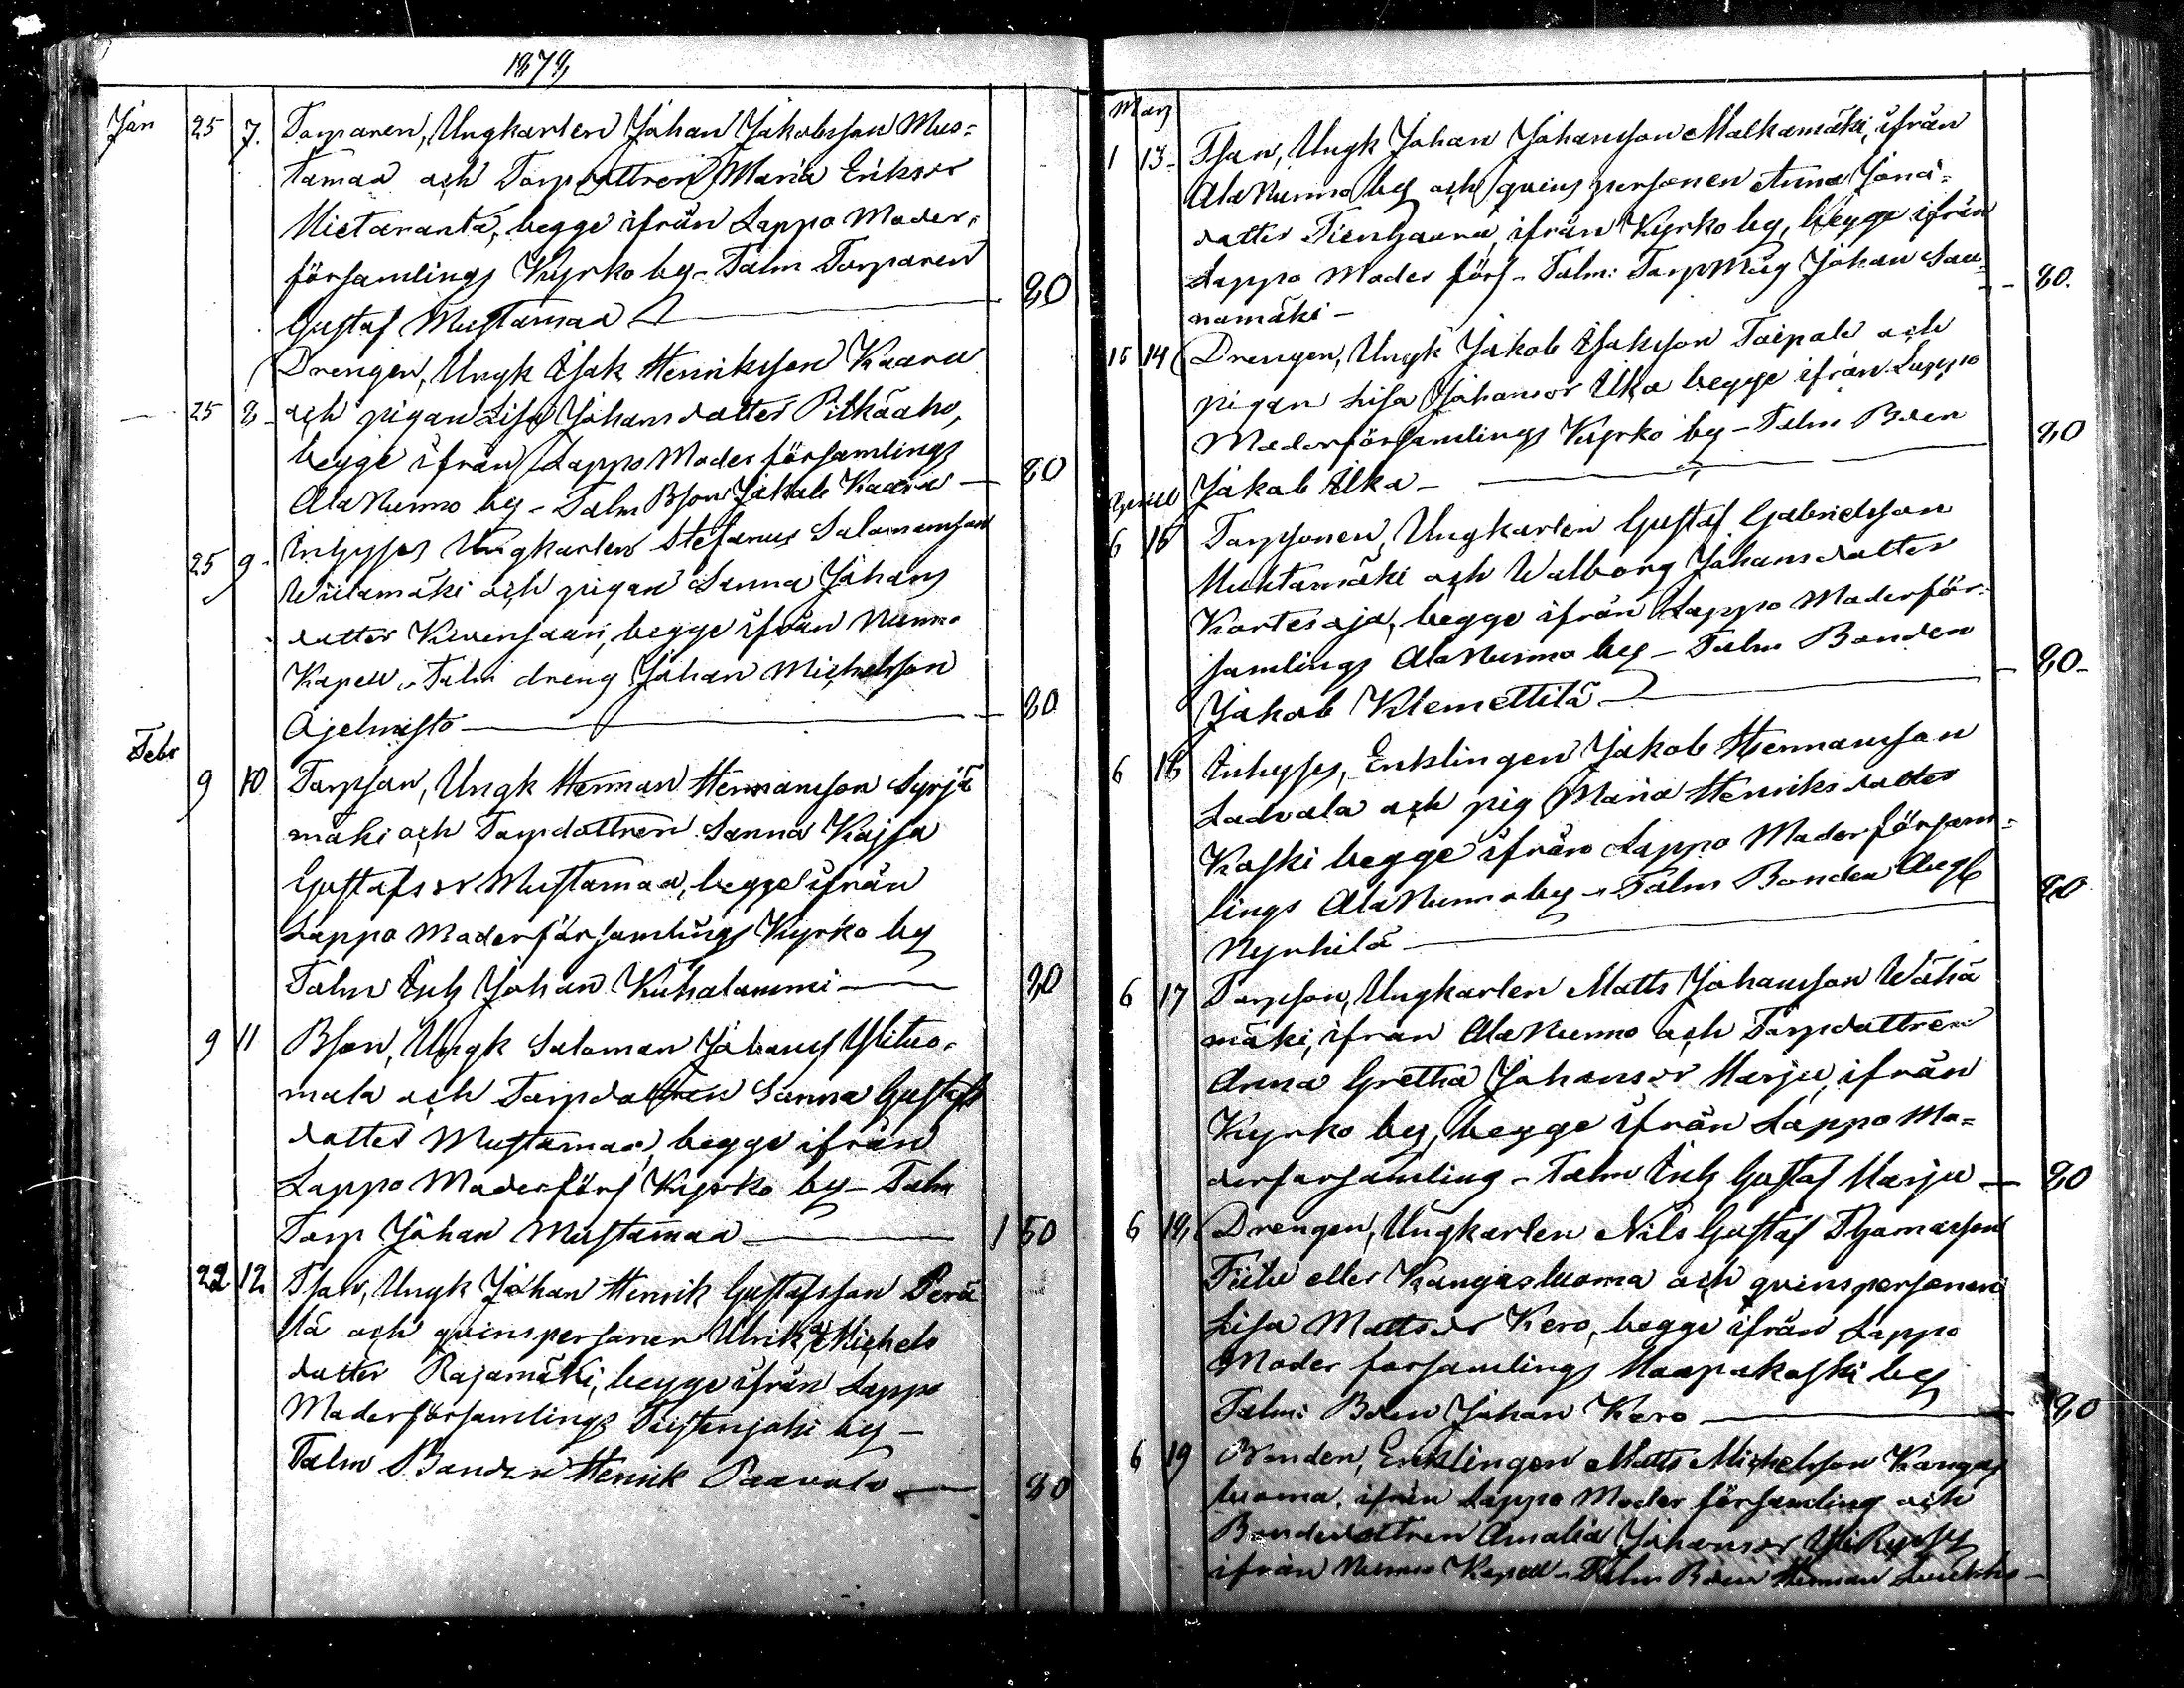 1879,
Jan 25 7. Torparen, Ungkarlen Johan Jakobsson Mus=
tamaa och Torpdottren Maria Eriksdr
Mietaranta, begge ifrån Lappo Moder=
församlings Kyrko by - Talm Torparen
Gustaf Mustamaa 80
Drengen, Ungk Isak Henriksson Kaara
— 25 8 - och pigan Lisa Johansdotter Pitkäaho,
begge ifrån Lappo Moderförsamlings
AlaNurmo by - Talm Bson Jakob Kaara — 80
25 9 - Inhyses Ungkarlen Stefanus Salomonsson
Wiitamäki och pigan Sanna Johans
dotter Kivensaari, begge ifrån Nurmo
Kapell - Talm dreng Johan Michelsson
Ojelmisto 80
Febr
9 10 Torpson, Ungk Herman Hermansson Syrjä
mäki och Torpdottren Sanna Kajsa
Gustafsdr Mustamaa, begge ifrån
Lappo Moderförsamlings Kyrko by
Talm Inh Johan Kuhalammi — 80
9 11 Bson, Ungk Salomon Johans Ylituo-
mala och Torpdottren Sanna Gustafs
dotter Mustamaa, begge ifrån
Lappo Moderförs Kyrko by - Talm
Torp Johan Mustamaa — 1 50
22 12 Tson, Ungk Johan Henrik Gustafsson Perä
lä och qvinspersonen Ulrika Michels
dotter Rajamäki, begge ifrån Lappo
Moderförsamlings Tiistenjoki by -
Talm Bonden Henrik Paavola — 80
Mars
1 13 - Tson, Ungk Johan Johansson Malkamäki, ifrån
AlaNurmo by och qvinspersonen Anna Jona=
dotter Tienhaara, ifrån Kyrko by, begge ifrån
Lappo Moder förs - Talm: Torpmåg Johan Sau=
namäki - 80.
15 14 Drengen, Ungk Jakob Isaksson Taipale och
pigan Lisa Johansdr Ilka begge ifrån Lappo
Moderförsamlings Kyrko by - Talm Bden
Jakob Ilka - 80
April
6 15 Torpsonen, Ungkarlen Gustaf Gabrielsson
Muhtamäki och Walborg Johansdotter
Kortesoja, begge ifrån Lappo Moderför-
samlings AlaNurmo by - Talm Bonden
Jakob Klemettilä 80 -
6 16 Inhyses, Enklingen Jakob Hermansson
Ladvala och pig Maria Henriksdotter
Koski begge ifrån Lappo Moderförsam=
lings AlaNurmo by - Talm Bonden
Nyrhilä 80
6 17 Torpson, Ungkarlen Matts Johansson Wähä
mäki, ifran AlaNurmo och Torpdottren
Anna Gretha Johansdr Marju, ifrån
Kyrko by, begge ifrån Lappo Mo=
derforsamling - Talm Inh Gustaf Marju — 80
6 18, Drengen, Ungkarlen Nils Gustaf Thomasson
Tiitu eller Kangasluoma och qvinspersonen
Lisa Mattsdr Kero, begge ifrån Lappo
Moder forsamlings Haapakoski by
Talm: Bden Johan Kero — 80
6 19 Bonden, Enklingen Matts Michelsson Kangas
luoma, ifrån Lappo Moder församling och
Bondedottren Amalia Johansdr
ifrån Nurmo Kapell - Talm Bden Herman